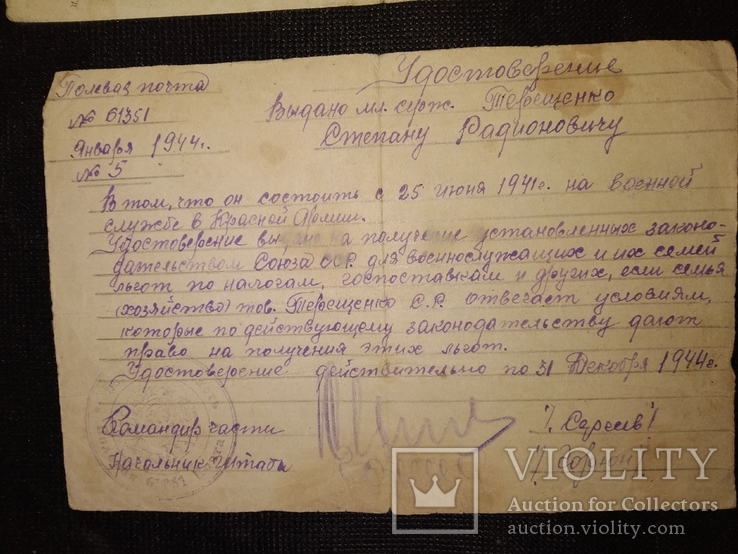 Удостоверение
Полевая почта
№ 61351
Января 1944г.
№ 5
Выдано мл. серж. Терещенко
Степану Радионовичу
В том, что он состоить с 25 июня 1941г. на военной
службе в Красной Армии.
Удостоверение выдано на получение установленных законо-
дательством Союза ССР. для военнослужащих и их семей
льгот по налогам, госпоставкам и других, если семья
(хозяйство) тов. Терещенко С.Р. отвечает условиям,
которые по действующему законодательству дают
право на получения этих льгот.
Удостоверение действительно по 31 Декабря 1944г.
Командир части
Начальник Штаба
VIOLITY
Auction for Collectors
auction.violity.com